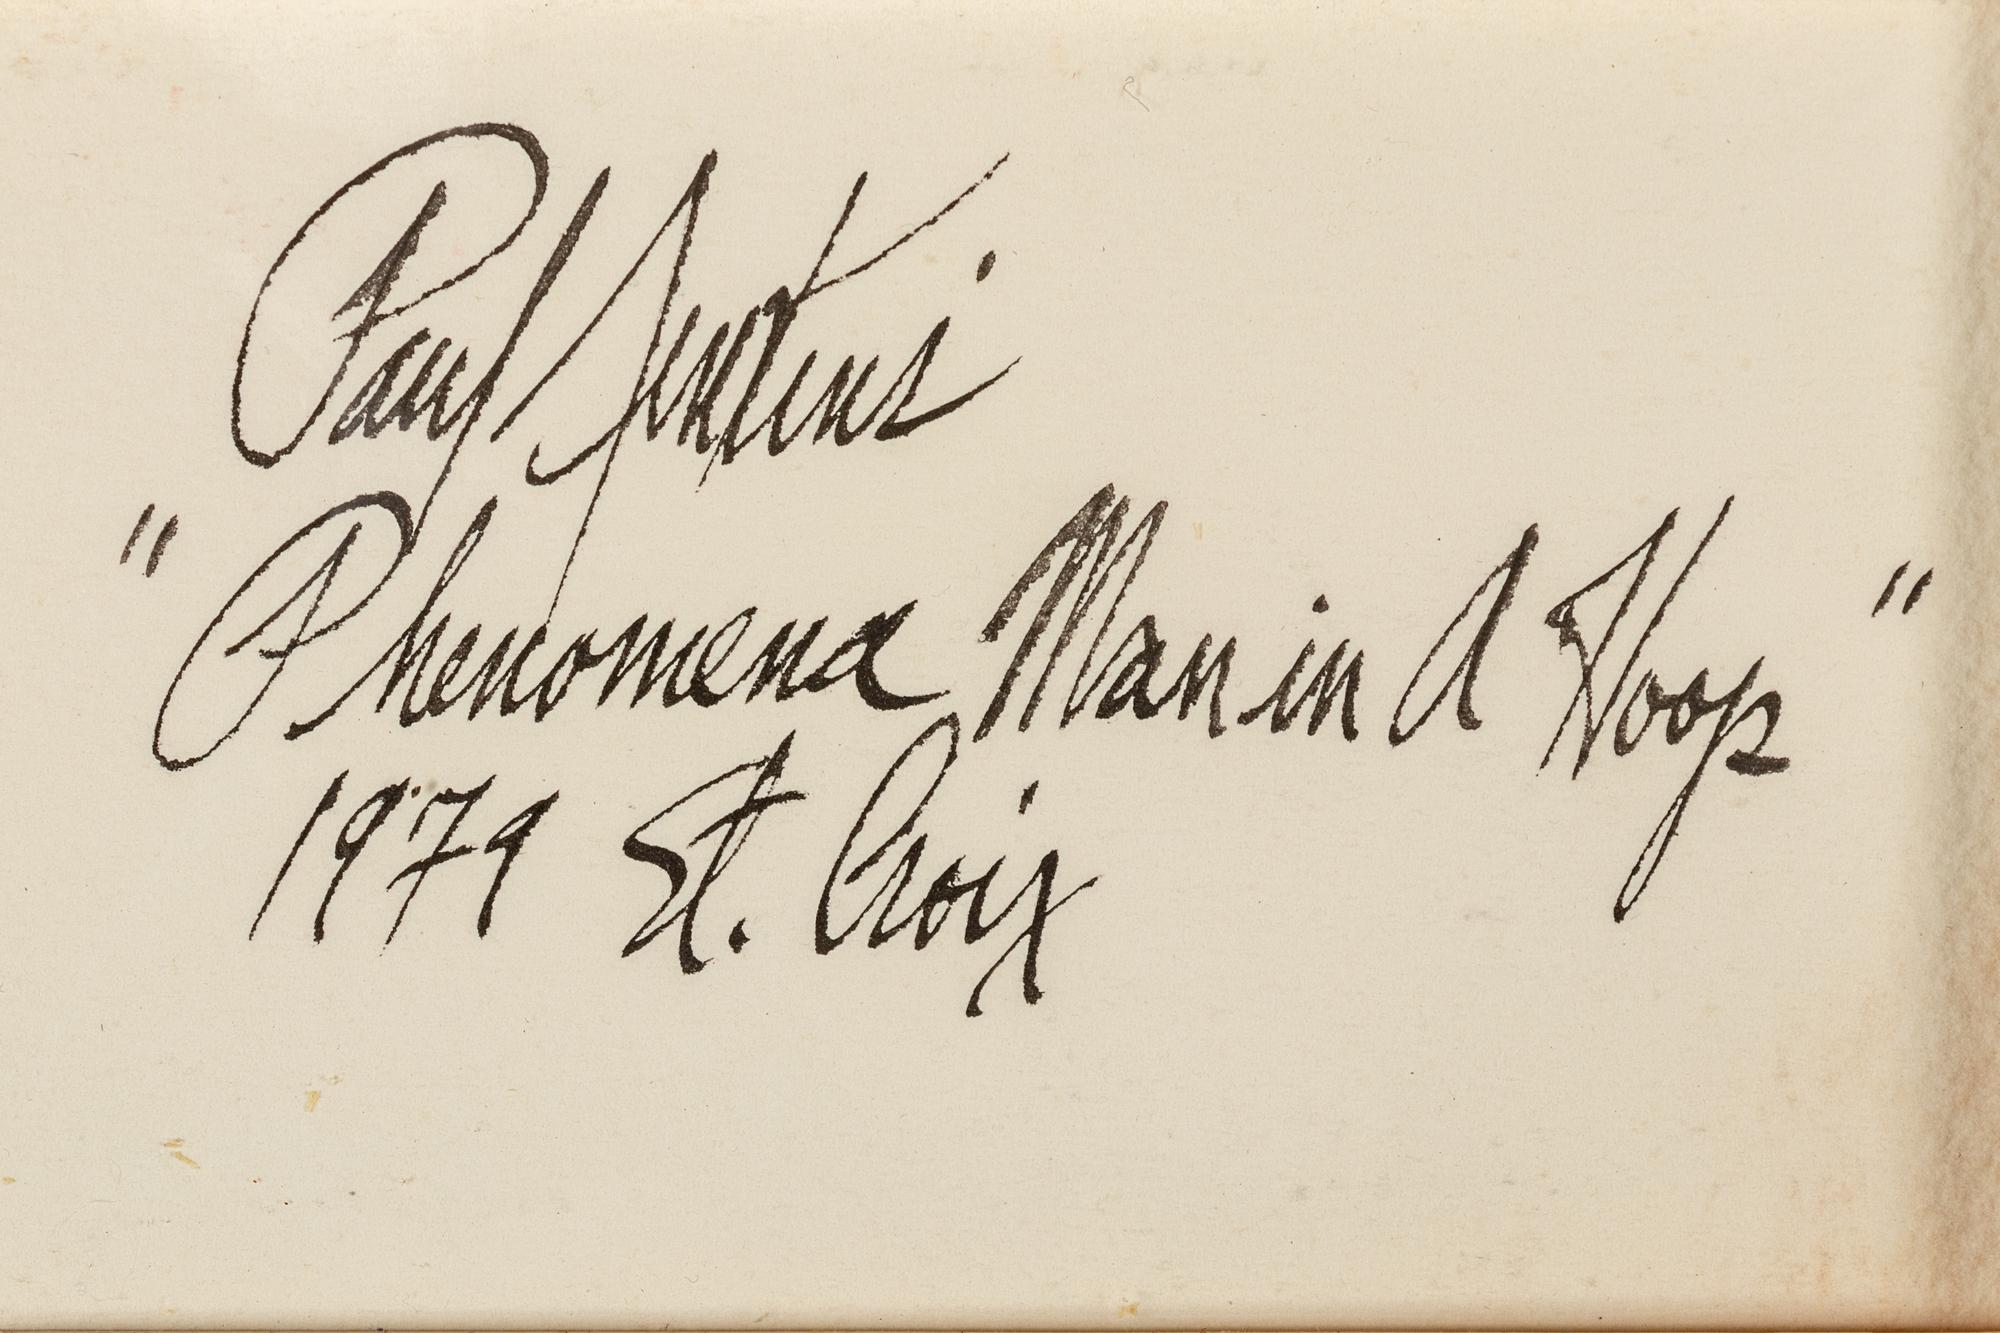 Paul Jenkins
"Phenomena Man in A Hoop"
1979 St. Croix